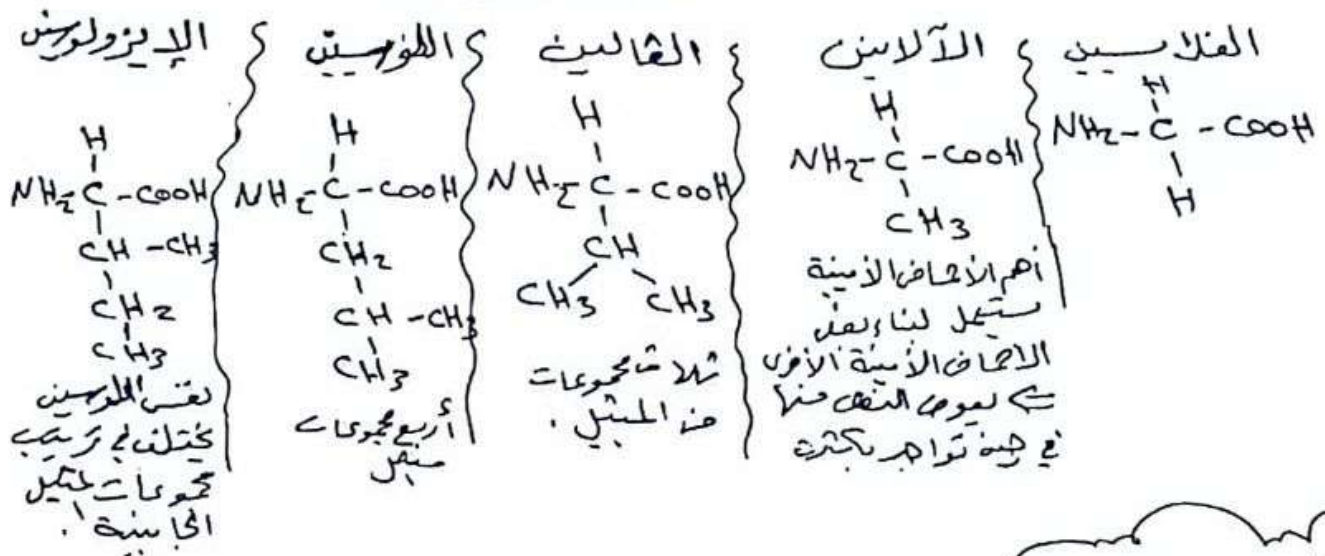 الغلايسين
H
NH2-C-COOH
H
الآلانين
H
NH2-C-COOH
CH3
أهم الأحماض الأمينية
تستعمل لبناء بعض
الاحماض الأمينية الأخرى
يعوض النقص منها
في تواجد بكثرة
الڤالين
H
NH2-C-COOH
CH
CH3 CH3
ثلاث مجموعات
من الميثيل.
اللوسين
H
NH2-C-COOH
CH2
CH-CH3
CH3
أربع مجموعات
ميثيل
الإيزولوسين
H
NH2-C-COOH
CH-CH3
CH2
CH3
نفس اللوسين
يختلف في ترتيب
مجموعات الميثيل
الجانبية.